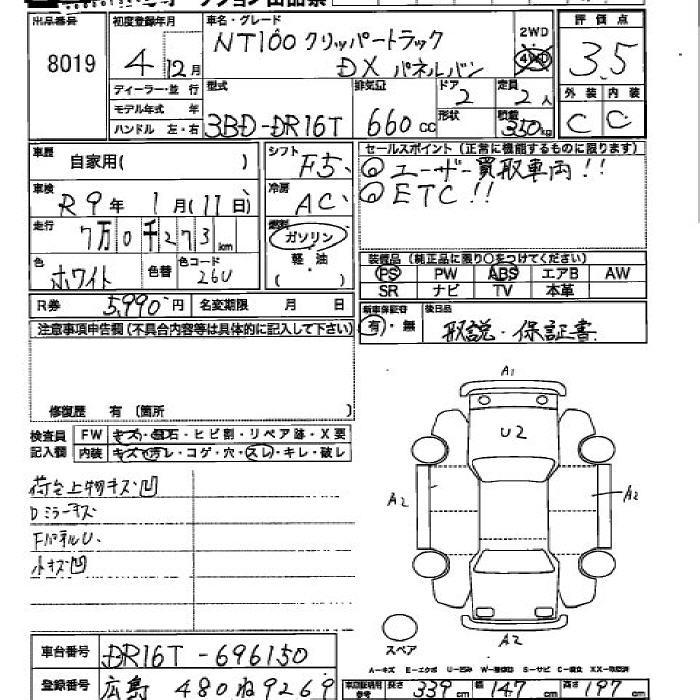 出品番号
8019
初度登録年月
4年12月
ディーラー・並行
モデル年式 年
ハンドル 左・右
車名・グレード
NT100クリッパートラック
DX パネルバン
2WD
4WD
評価点
3.5
外装 内装
C C
型式
3BD-DR16T
排気量
660cc
ドア
2
形状
定員
2人
積載
350kg
車歴
自家用( )
車検
R9年 1月(11日)
走行
7万0千273km
色
ホワイト
色替
色コード
26U
シフト
F5
冷房
AC
燃料
ガソリン
軽・油
( ・ )
セールスポイント(正常に機能するものに限ります)
◎ユーザー買取車両!!
◎ETC!!
装備品(純正品に限り○をつけてください)
PS PW ABS エアB AW
SR ナビ TV 本革
R券 5,990円 名変期限 月 日
新車保証書
有・無
後日品
取説・保証書
注意事項申告欄(不具合内容等は具体的に記入して下さい)
修復歴 有(箇所 )
検査員
記入欄
FW キズ・飛石・ヒビ割・リペア跡・X要
内装 キズ・汚レ・コゲ・穴・スレ・キレ・破レ
荷台上物キズ凹
Dミラーキズ
FパネルU.
小キズ凹
A1
U2
A2
A2
A2
スペア
車台番号 DR16T-696150
登録番号 広島 480ね9269
A−キズ E−エクボ U−凹み W−補修跡 S−サビ C−腐食 XX−交換済
車庫証明用
参考
長さ 339cm 幅 147cm 高さ 197cm